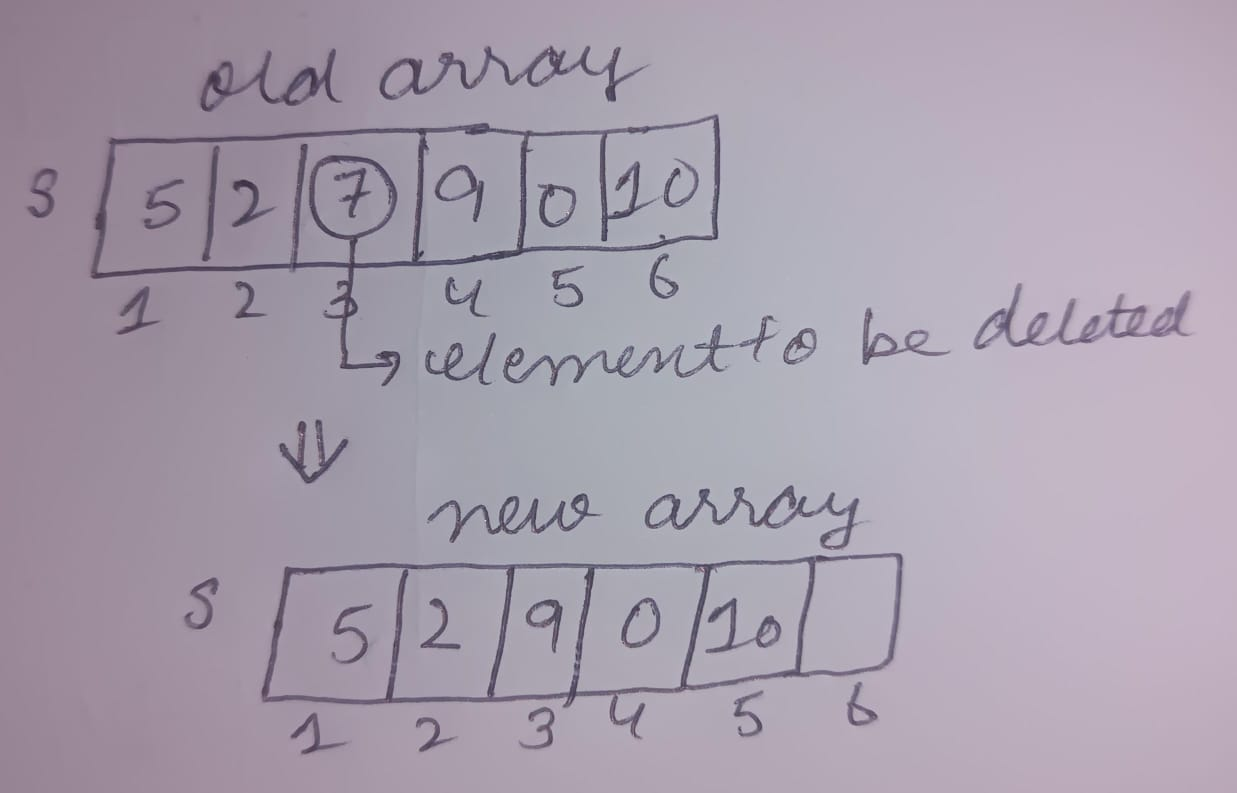 old array
S 5 2 7 9 0 10
1 2 3 4 5 6
element to be deleted
new array
S 5 2 9 0 10
1 2 3 4 5 6